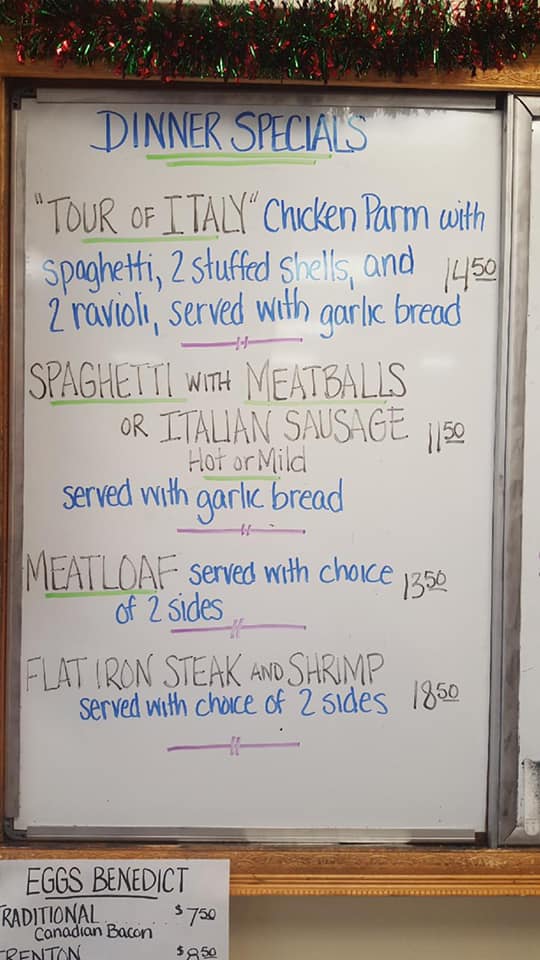 DINNER SPECIALS
"TOUR OF ITALY" Chicken Parm with
spaghetti, 2 stuffed shells, and 14 50
2 ravioli, served with garlic bread
SPAGHETTI WITH MEATBALLS
OR ITALIAN SAUSAGE 11 50
Hot or Mild
served with garlic bread
MEATLOAF served with choice 13 50
of 2 sides
FLAT IRON STEAK AND SHRIMP
served with choice of 2 sides 18 50
EGGS BENEDICT
RADITIONAL $7 50
Canadian Bacon
RENTON $8 50